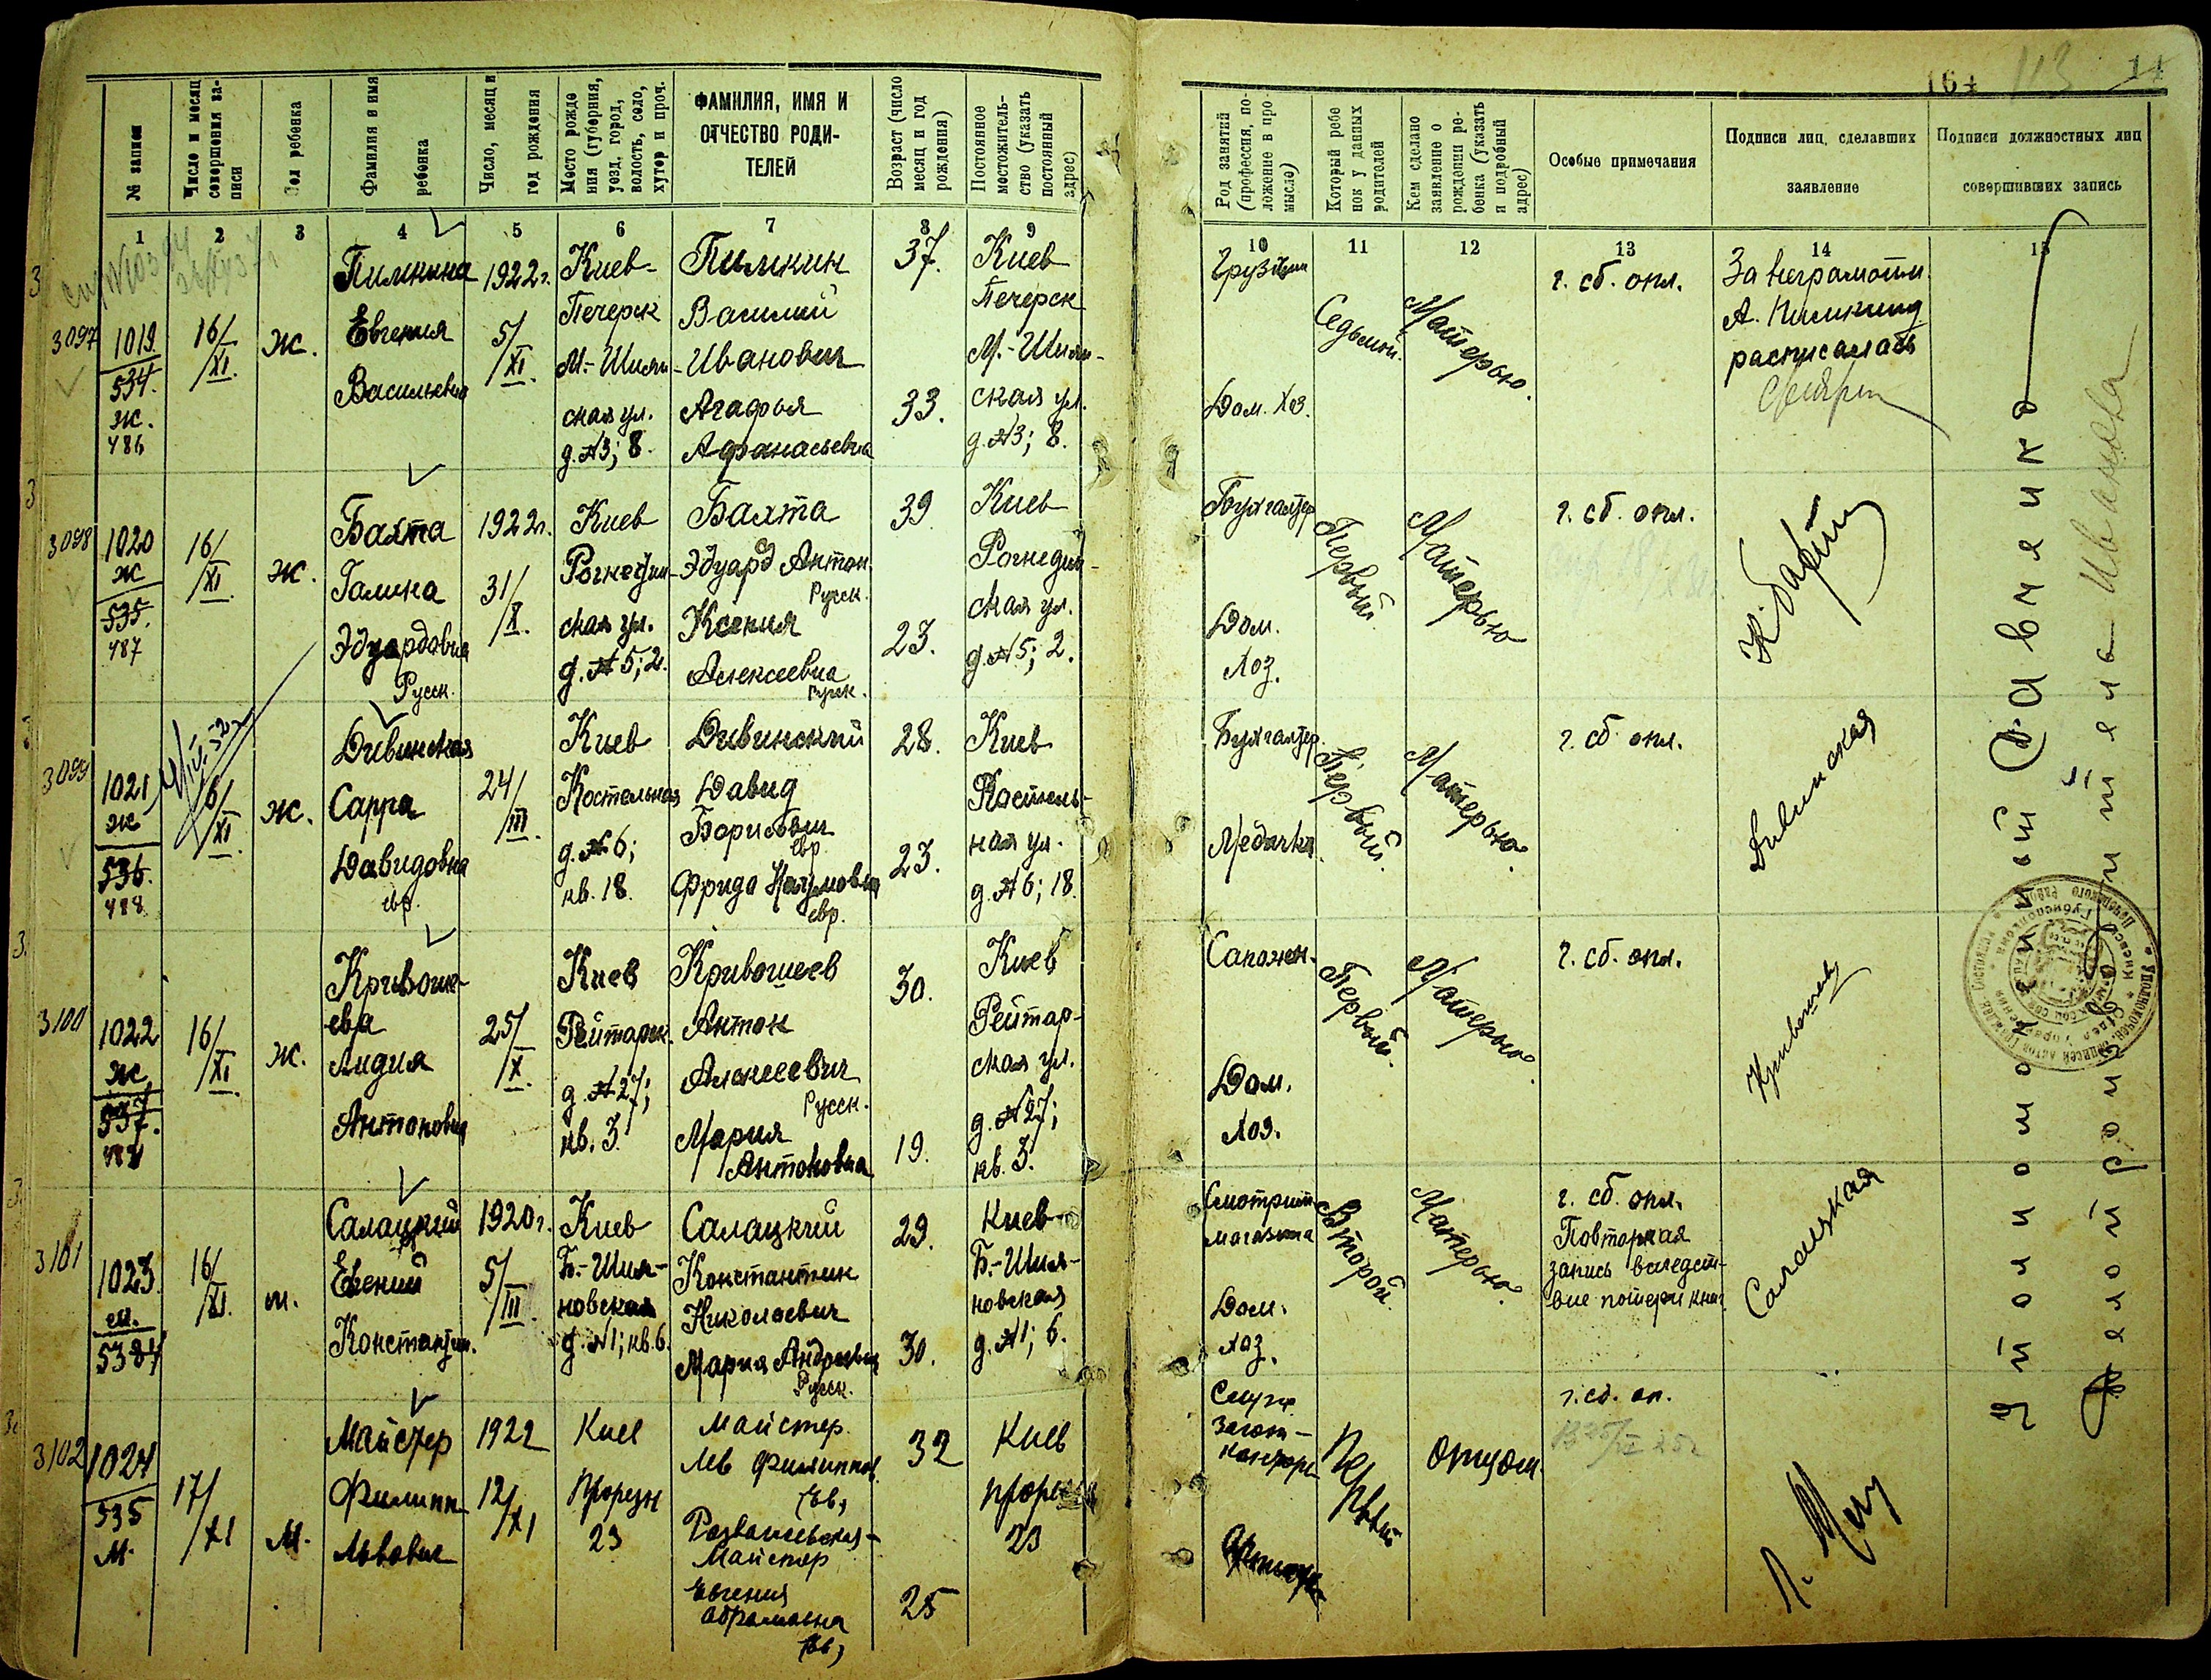 164 113 11
№ записи
Число и месяц совершения записи
Пол ребенка
Фамилия и имя ребенка
Число, месяц и год рождения
Место рождения (губерния, уезд, город, волость, село, хутор и проч.
ФАМИЛИЯ, ИМЯ И ОТЧЕСТВО РОДИТЕЛЕЙ
Возраст (число месяц и год рождения)
Постоянное местожительство (указать постоянный адрес)
Род занятий (профессия, положение в промысле)
Который ребенок у данных родителей
Кем сделано заявление о рождении ребенка (указать и подробный адрес)
Особые примечания
Подписи лиц, сделавших заявление
Подписи должностных лиц совершивших запись
1 2 3 4 5 6 7 8 9 10 11 12 13 14 15
3097
1019
534.
ж.
486
16/XI.
ж.
Пимкина
Евгения
Васильевна
1922г.
5/XI.
Киев-
Печерск
М.-Шиян-
ская ул.
д. №3; 8.
Пимкин
Василий
Иванович
Агафья
Афанасьевна
37.
33.
Киев
Печерск
М.-Шиян-
ская ул.
д. №3; 8.
Дом. Хоз.
Седьмой.
Матерью.
г. сб. опл.
За неграмотн.
расписалась
3098
1020
ж
535.
487
16/XI.
ж.
Бахта
Галина
Эдуардовна
Русск.
1922г.
31/X.
Киев
Рогнедин-
ская ул.
д. №5; 2.
Бахта
Эдуард Антон.
Русск.
Ксения
Алексеевна
Русск.
39
23.
Киев
Рогнедин-
ская ул.
д. №5; 2.
Бухгалтер
Дом.
Хоз.
Первый
Матерью
г. сб. опл.
3099
1021
ж
536.
488
16/XI.
ж.
Дивинская
Сарра
Давидовна
евр.
24/III.
Киев
Костельная
д. №6;
кв. 18.
Дивинский
Давид
Борисович
евр.
Фрида Наумовна
евр.
28.
23.
Киев
Костель-
ная ул.
д. №6; 18.
Бухгалтер.
Первый.
Матерью.
г. сб. опл.
Дивинская
3100
1022
ж
537.
16/XI.
ж.
Кривоше-
ева
Лидия
Антоновна
25/X.
Киев
Рейтарск.
д. №27;
кв. 3.
Кривошеев
Антон
Алексеевич
Русск.
Мария
Антоновна
30.
19.
Киев
Рейтар-
ская ул.
д. №27;
кв. 3.
Сапожн.
Дом.
Хоз.
Первый.
Матерью.
г. сб. опл.
3101
1023
м.
16/XI.
м.
Салацкий
Евгений
Константин.
1920г.
5/III.
Киев
Б.-Шия-
новская
д. №1; кв. 6.
Салацкий
Константин
Николаевич
Мария Андреевна
Русск.
29.
30.
Киев
Б.-Шия-
новская
д. №1; 6.
Смотрит.
магазина
Дом.
Хоз.
Второй.
Матерью.
г. сб. опл.
Повторная
запись вследст-
вие потери книг
Салацкая
3102
1024
535
м.
17/XI
м.
Майстер
Филипп
Львович
1922
12/XI
Киев
Прорезн
23
Майстер
Лев Филиппов.
Майстер
Евгения
Абрамовна
32
25
Киев
23
Первый
Отцом.
г. сб. оп.
Уполномоченный
Делопроизводитель Иванова